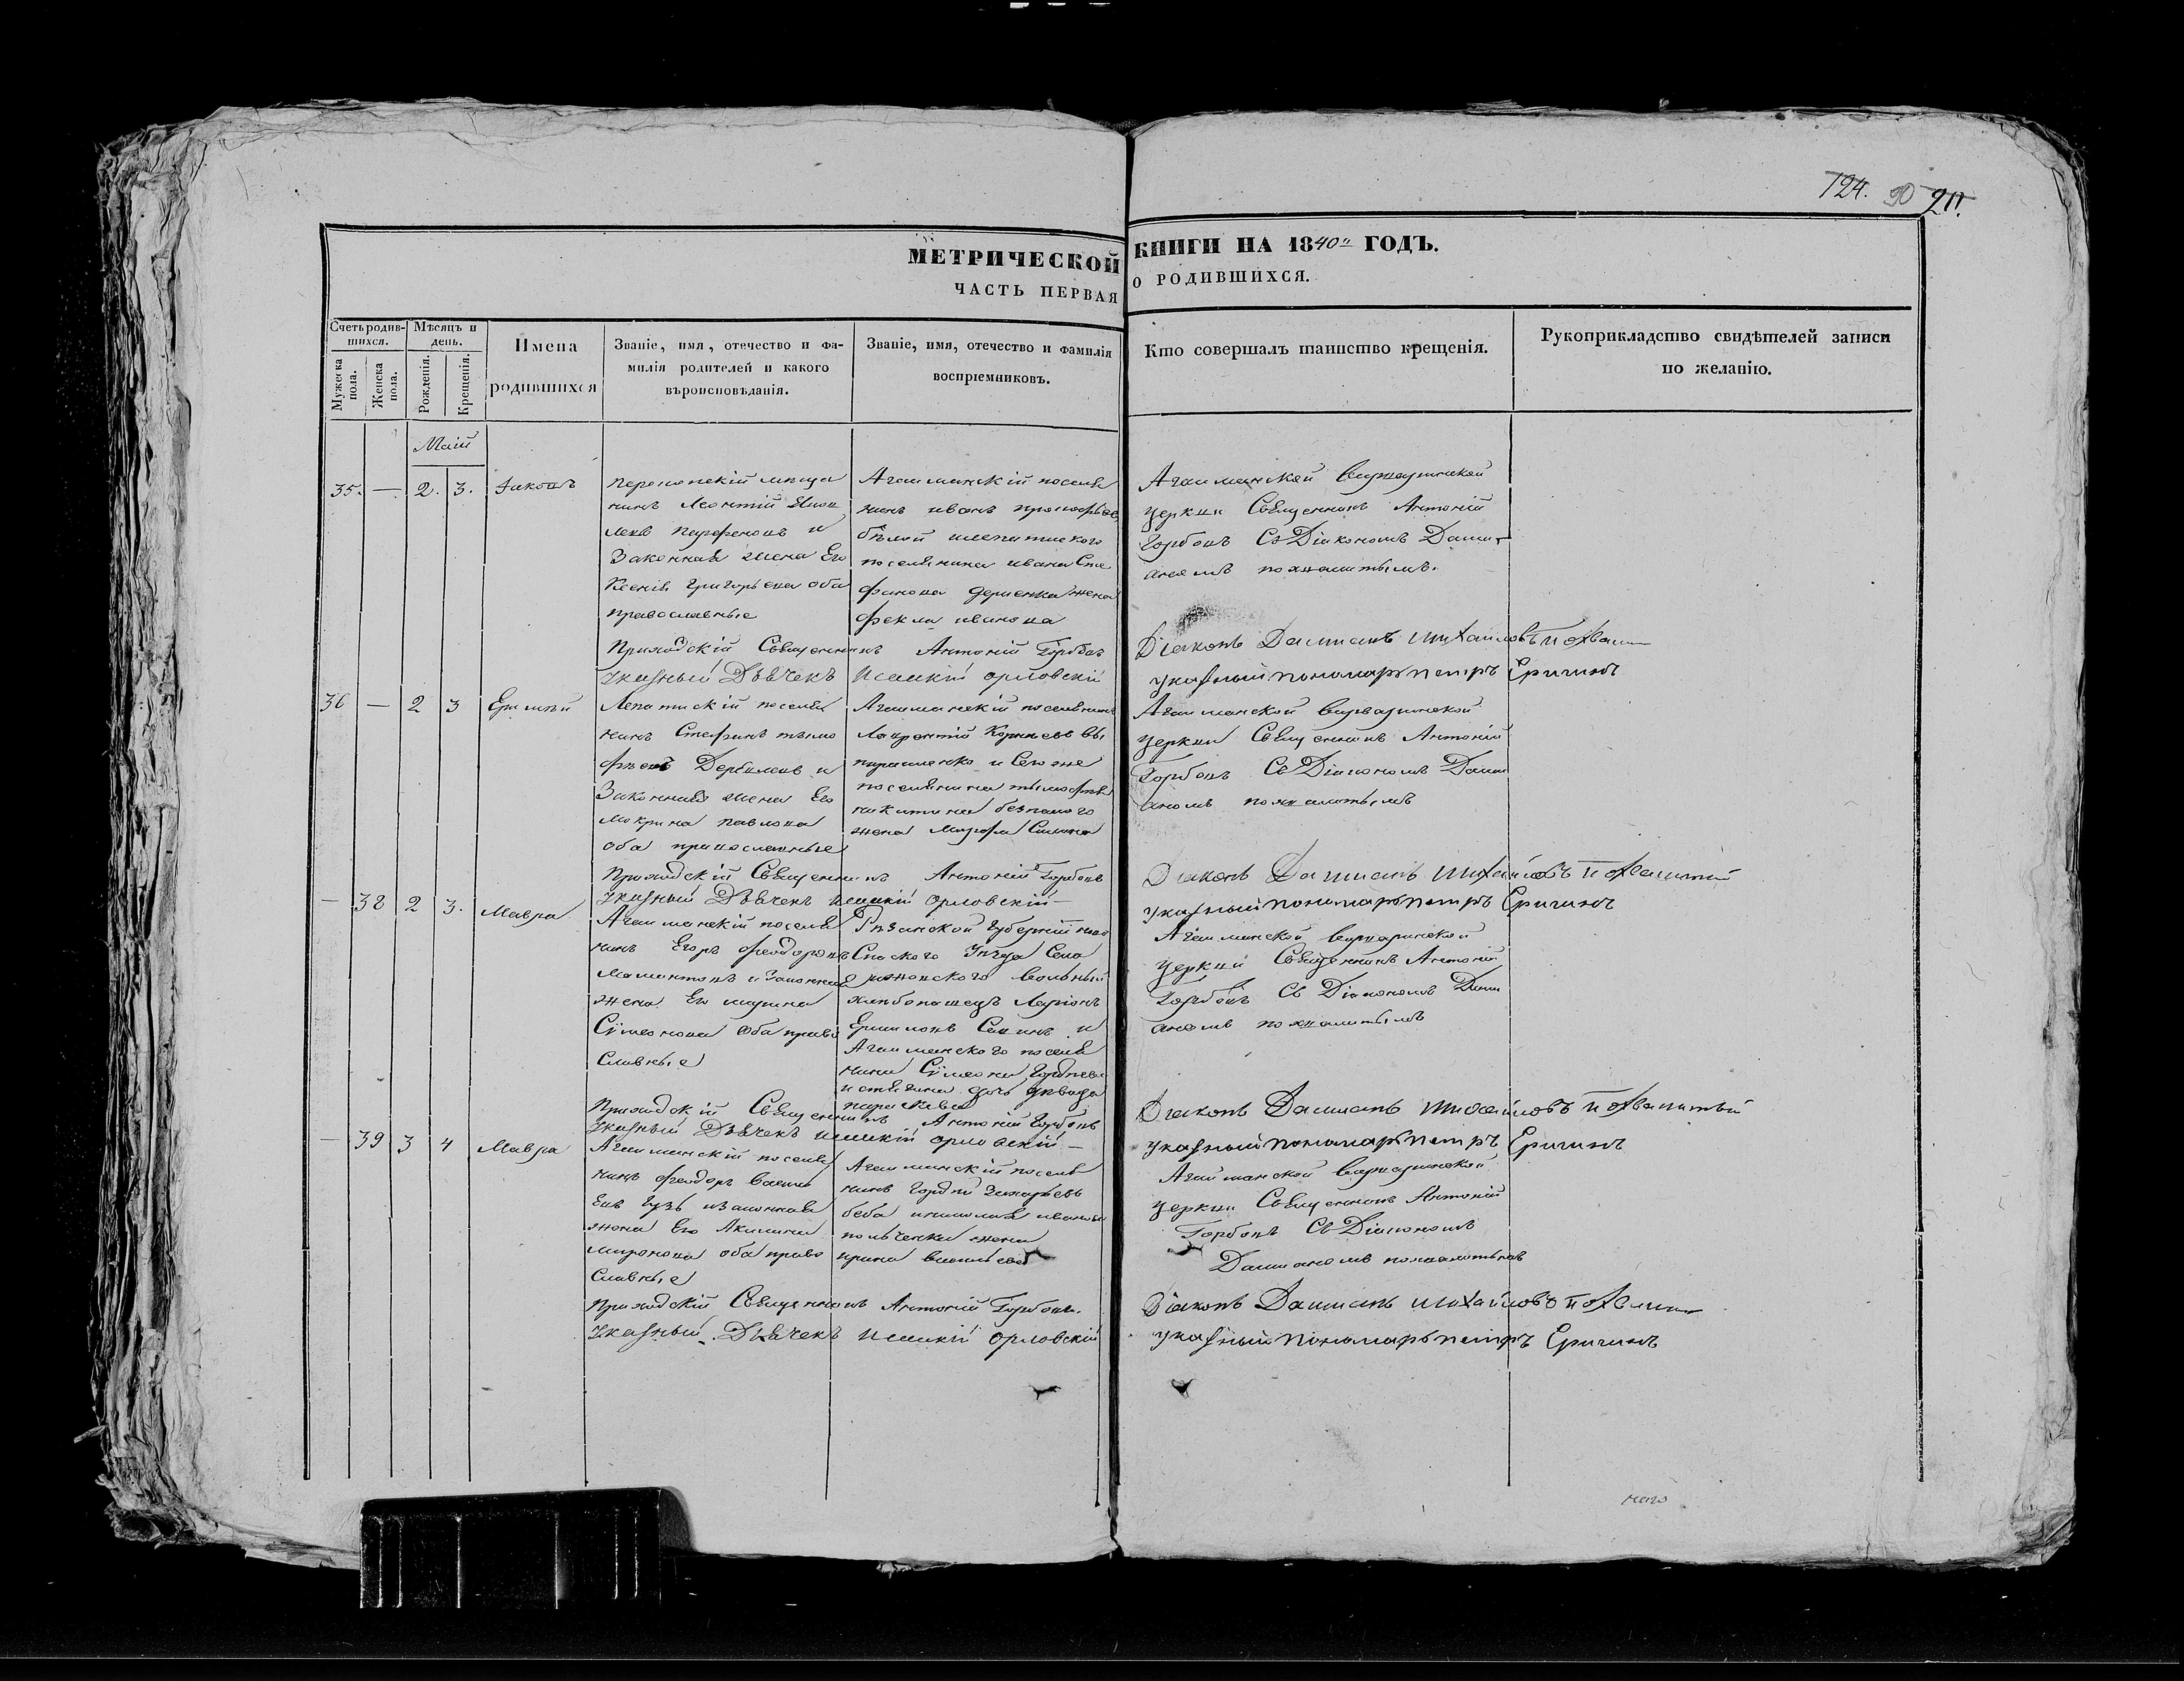 124. 90 211.
МЕТРИЧЕСКОЙ КНИГИ НА 1840 ГОДЪ.
ЧАСТЬ ПЕРВАЯ О РОДИВШИХСЯ.
Счетъ родившихся.
Мужеска пола.
Женска пола.
Мѣсяцъ и день.
Рожденія.
Крещенія.
Имена
родившихся
Званіе, имя, отечество и фа-
милія родителей и какого
вѣроисповѣданія.
Званіе, имя, отечество и фамилія
воспріемниковъ.
Кто совершалъ таинство крещенія.
Рукоприкладство свидѣтелей записи
по желанію.
Маій
35. — 2. 3.
нинъ Леонтій
и
Законная жена Его
Григорьева оба
православные
Агайманскій поселя
нинъ иванъ
поселянина ивана Сте
фанова жена
фекла иванова
Агайманской Варваринской
церкви Священникъ Антоній
Горбовъ Съ Діакономъ Дами
аномъ похвалитымъ.
Приходскій Священникъ Антоній Горбовъ
Указный Дьячекъ орловскій
Діаконъ Даміанъ Михайловъ
указный пономарь петръ Еричинъ
36 — 2 3
поселя
нинъ Стефанъ тимо
фѣевъ и
Законная жена Его
Мокрина павлова
оба православные
Агайманскій поселянинъ
Лаврентій Корнѣевъ
и Сего же
поселянина тимофѣя
никитина
жена Марфа
Агайманской Варваринской
церкви Священникъ Антоній
Горбовъ Съ Діакономъ Дами
аномъ похвалитымъ
Приходскій Священникъ Антоній Горбовъ
Указный Дьячекъ орловскій
Діаконъ Даміанъ Михайловъ похвалитый
указный пономарь петръ Еричинъ
— 38 2 3. Мавра
Агайманскій поселя
нинъ Егоръ феодоровъ
Мамонтовъ и Законная
жена Его марина
Сѵмеонова оба право
Славные
Рязанской Губерніи
Спаского Уѣзда Села
хлѣбопашецъ Ларіонъ
и
Агайманского поселя
нина Сѵмеона
дочь девица
параскева
Агайманской Варваринской
церкви Священникъ Антоній
Горбовъ Съ Діакономъ Дами
аномъ похвалитымъ
Приходскій Священникъ Антоній Горбовъ
Указный Дьячекъ орловскій
Діаконъ Даміанъ Михайловъ похвалитый
указный пономарь петръ Еричинъ
— 39 3 4 Мавра
Агайманскій поселя
нинъ феодоръ Василь
евъ и законная
жена Его Акилина
миронова оба право
Славные
Агайманскій поселя
нинъ Гордѣй Захарьевъ
беба и николая иванова
жена
ирина васильева
Агайманской Варваринской
церкви Священникъ Антоній
Горбовъ Съ Діакономъ
Даміаномъ похвалитымъ
Приходскій Священникъ Антоній Горбовъ.
Указный Дьячекъ орловскій
Діаконъ Даміанъ Михайловъ
указный пономарь петръ Еричинъ